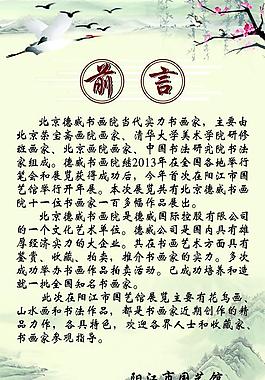 前言
北京德威书画院当代实力书画家，主要由
北京荣宝斋画院画家、清华大学美术学院研修
班画家、北京画院画家、中国书法研究院书法
家组成。德威书画院继2013年在全国各地举行
笔会和展览获得成功后，今年首次在阳江市国
艺馆举行开年展。本次展览共有北京德威书画
院十一位书画家一百多幅作品展出。
北京德威书画院是德威国际控股有限公司
的一个文化艺术单位。德威公司是国内具有雄
厚经济实力的大企业。其在书画艺术方面具有
鉴赏、收藏、拍卖、推介书画家的实力。多次
成功举办书画作品拍卖活动。已成功培养和造
就一批全国知名书画家。
此次在阳江市国艺馆展览主要有花鸟画、
山水画和书法作品，都是书画家近期创作的精
品力作，各具特色，欢迎各界人士和收藏家、
书画家参观指导。
阳江市国艺馆